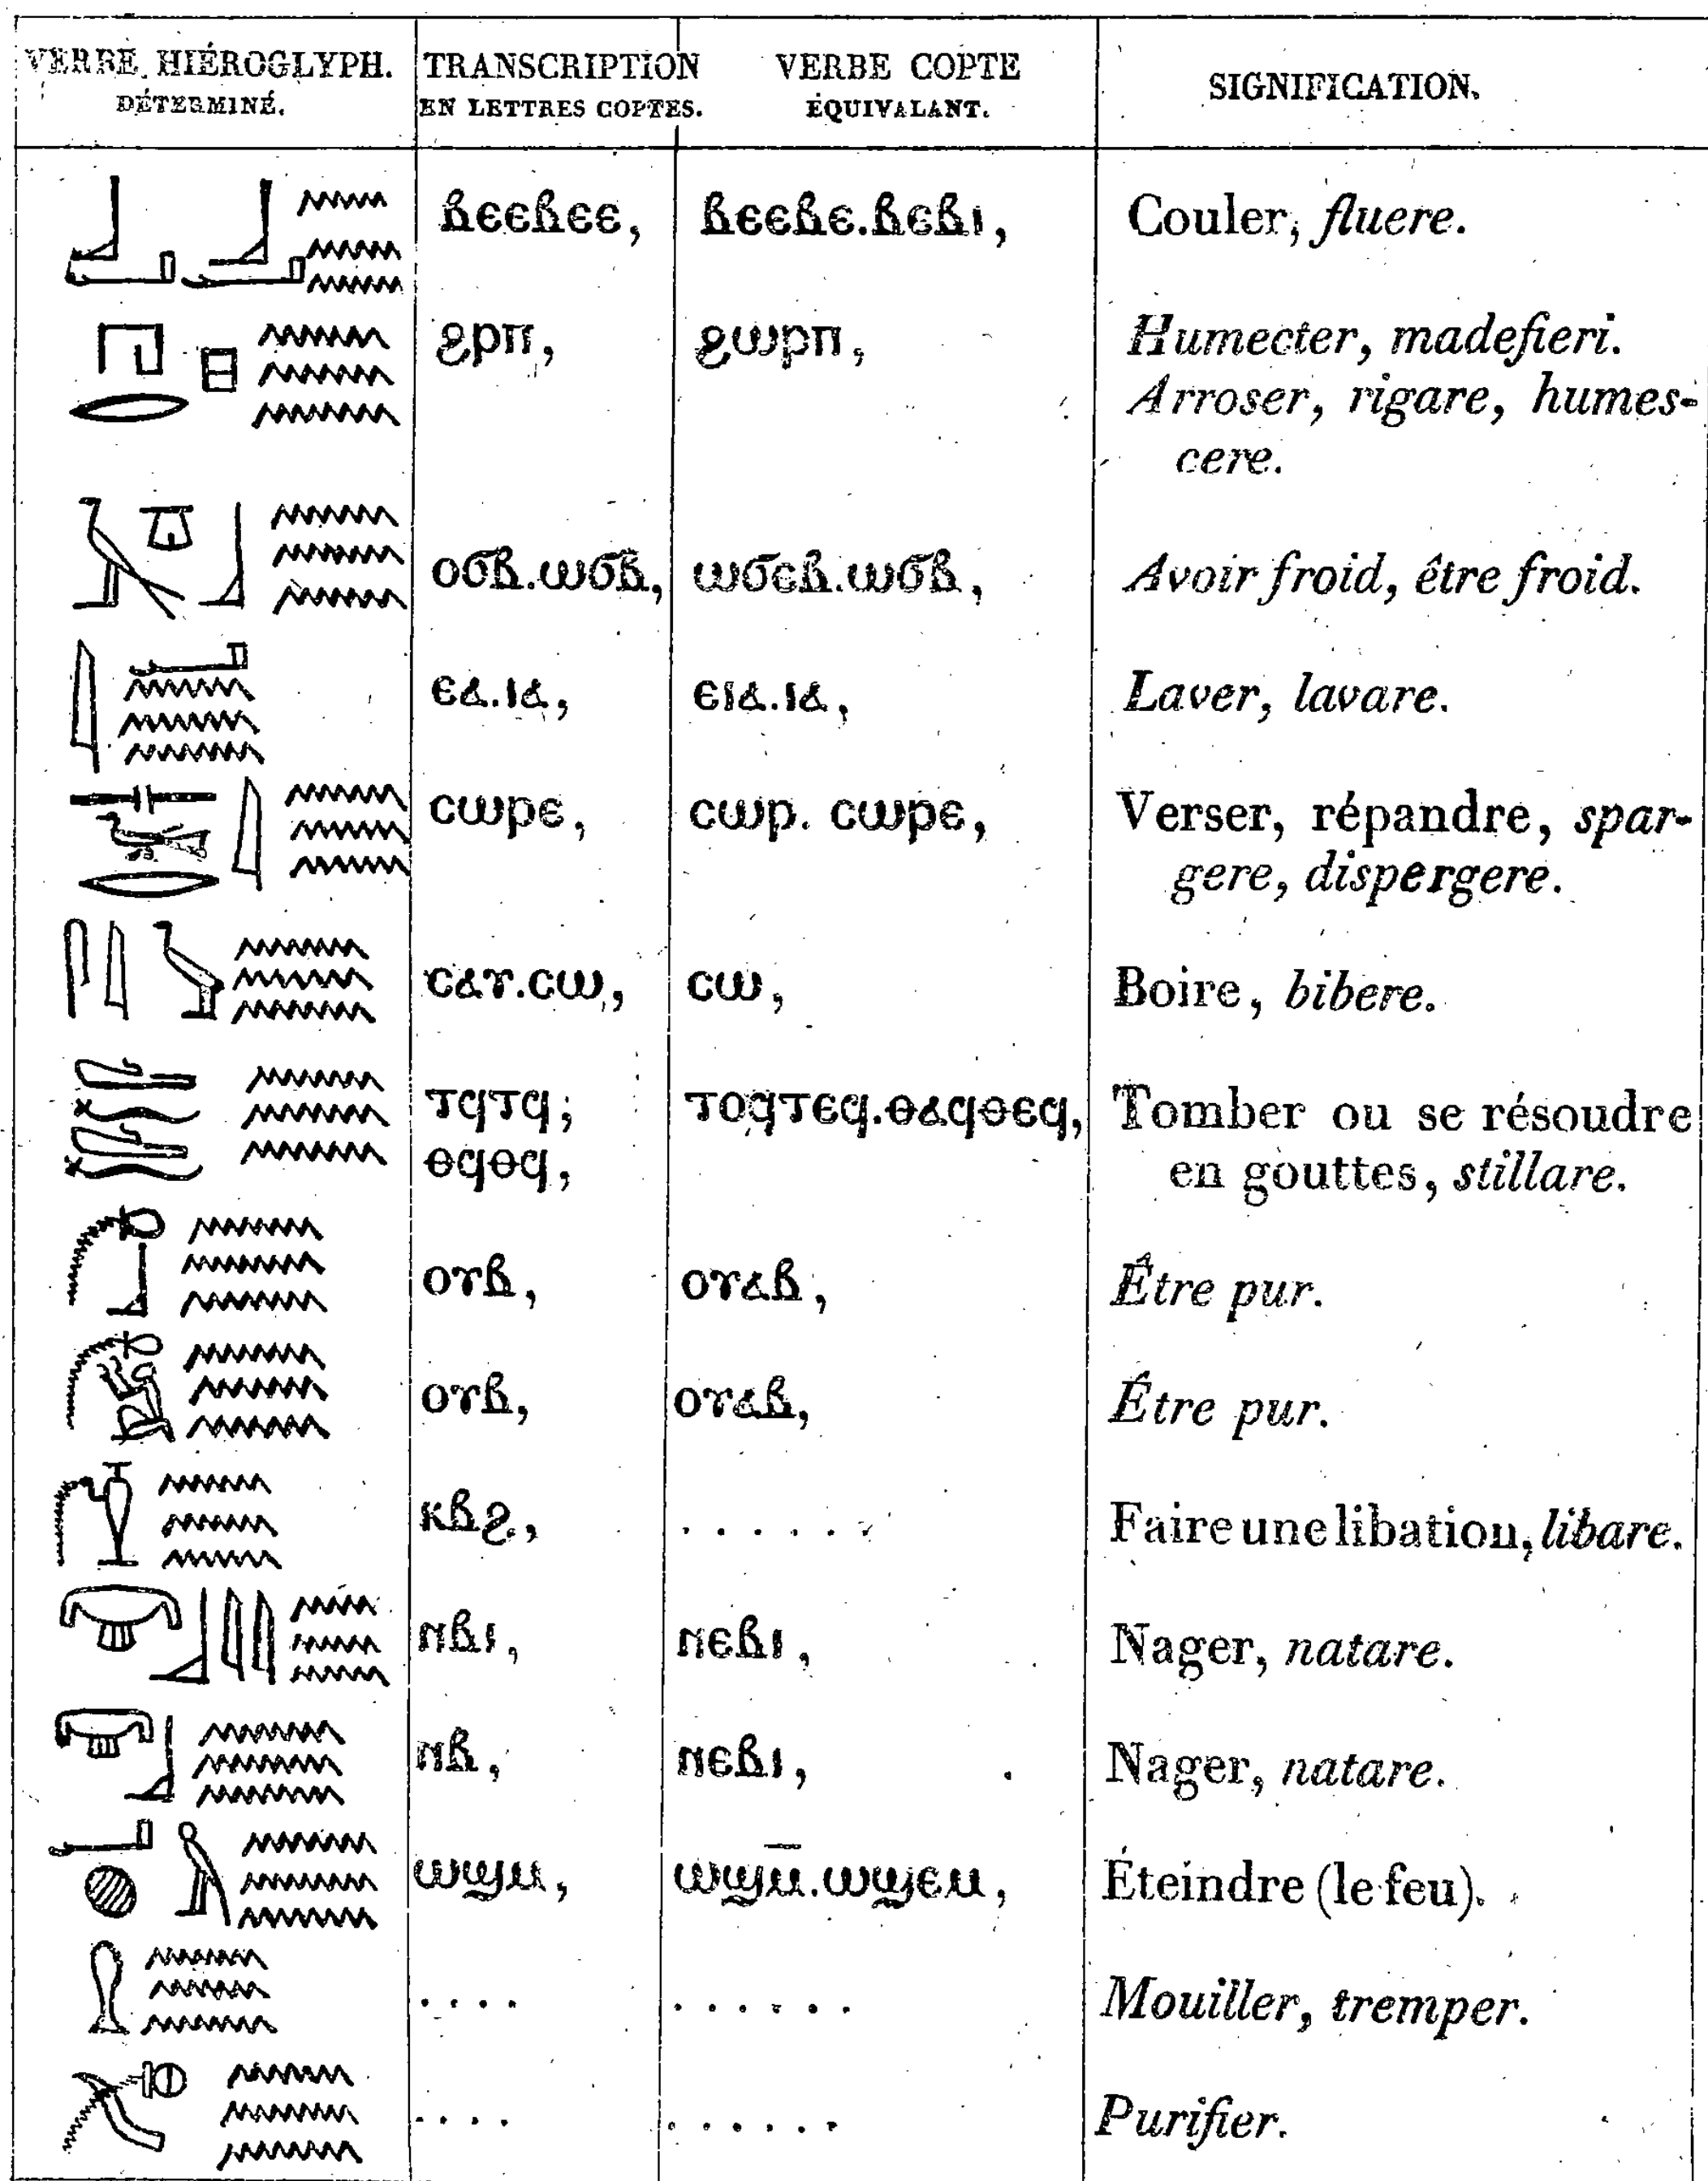 VERBE HIÉROGLYPH. TRANSCRIPTION VERBE COPTE SIGNIFICATION.
DÉTERMINÉ. EN LETTRES COPTES. ÉQUIVALANT.
ⲃⲉⲉⲃⲉⲉ, ⲃⲉⲉⲃⲉ.ⲃⲉⲃⲓ, Couler, fluere.
ϩⲣⲡ, ϩⲱⲣⲡ, Humecter, madefieri.
Arroser, rigare, humes-
cere.
ⲟϭⲃ.ⲱϭⲃ, ⲱϭⲉⲃ.ⲱϭⲃ, Avoir froid, être froid.
ⲉⲁ.ⲓⲁ, ⲉⲓⲁ.ⲓⲁ, Laver, lavare.
ⲥⲱⲣⲉ, ⲥⲱⲣ. ⲥⲱⲣⲉ, Verser, répandre, spar-
gere, dispergere.
ⲥⲁⲩ.ⲥⲱ, ⲥⲱ, Boire, bibere.
ⲧϥⲧϥ; ⲧⲟϥⲧⲉϥ.ⲑⲁϥⲑⲉϥ, Tomber ou se résoudre
ⲑϥⲑϥ, en gouttes, stillare.
ⲟⲩⲃ, ⲟⲩⲁⲃ, Être pur.
ⲟⲩⲃ, ⲟⲩⲁⲃ, Être pur.
ⲕⲃϩ, . . . . . . Faire une libation, libare.
ⲛⲃⲓ, ⲛⲉⲃⲓ, Nager, natare.
ⲛⲃ, ⲛⲉⲃⲓ, Nager, natare.
ⲱϣⲙ, ⲱϣⲙ̄.ⲱϣⲉⲙ, Éteindre (le feu).
. . . . . . . . . . Mouiller, tremper.
. . . . . . . . . . Purifier.